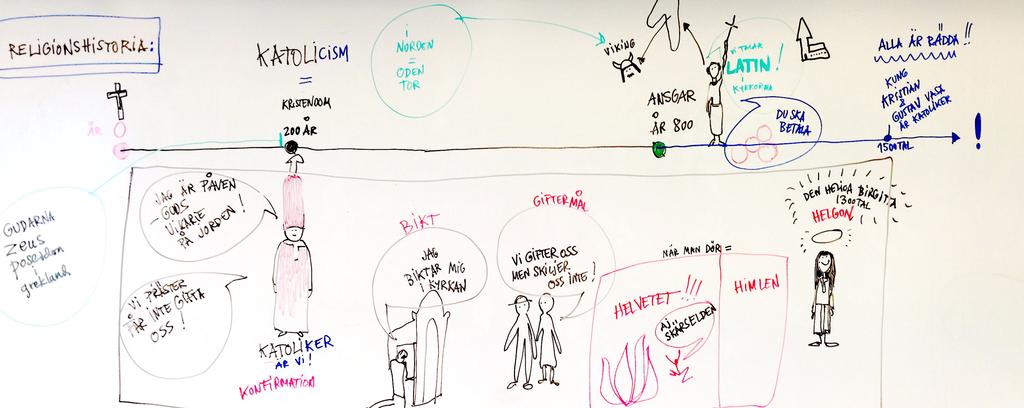 RELIGIONSHISTORIA:
ÅR
0
KATOLICISM
=
KRISTENDOM
200 ÅR
i
NORDEN
=
ODEN
TOR
VIKING
ANSGAR
ÅR 800
VI TALAR
LATIN!
I KYRKORNA
DU SKA
BETALA
ALLA ÄR RÄDDA!!
KUNG
KRISTIAN
&
GUSTAV VASA
ÄR KATOLIKER
1500TAL
!
GUDARNA
Zeus
poseidon
grekland
JAG ÄR PÅVEN
- GUDS
VIKARIE
PÅ JORDEN!
VI PRÄSTER
FÅR INTE GIFTA
OSS!
KATOLIKER
ÄR VI!
KONFIRMATION
BIKT
JAG
BIKTAR MIG
I KYRKAN
GIFTERMÅL
VI GIFTER OSS
MEN SKILJER
OSS INTE!
NÄR MAN DÖR =
HELVETET!!!
AJ
SKÄRSELDEN
HIMLEN
DEN HELIGA BIRGITTA
1300TAL
HELGON